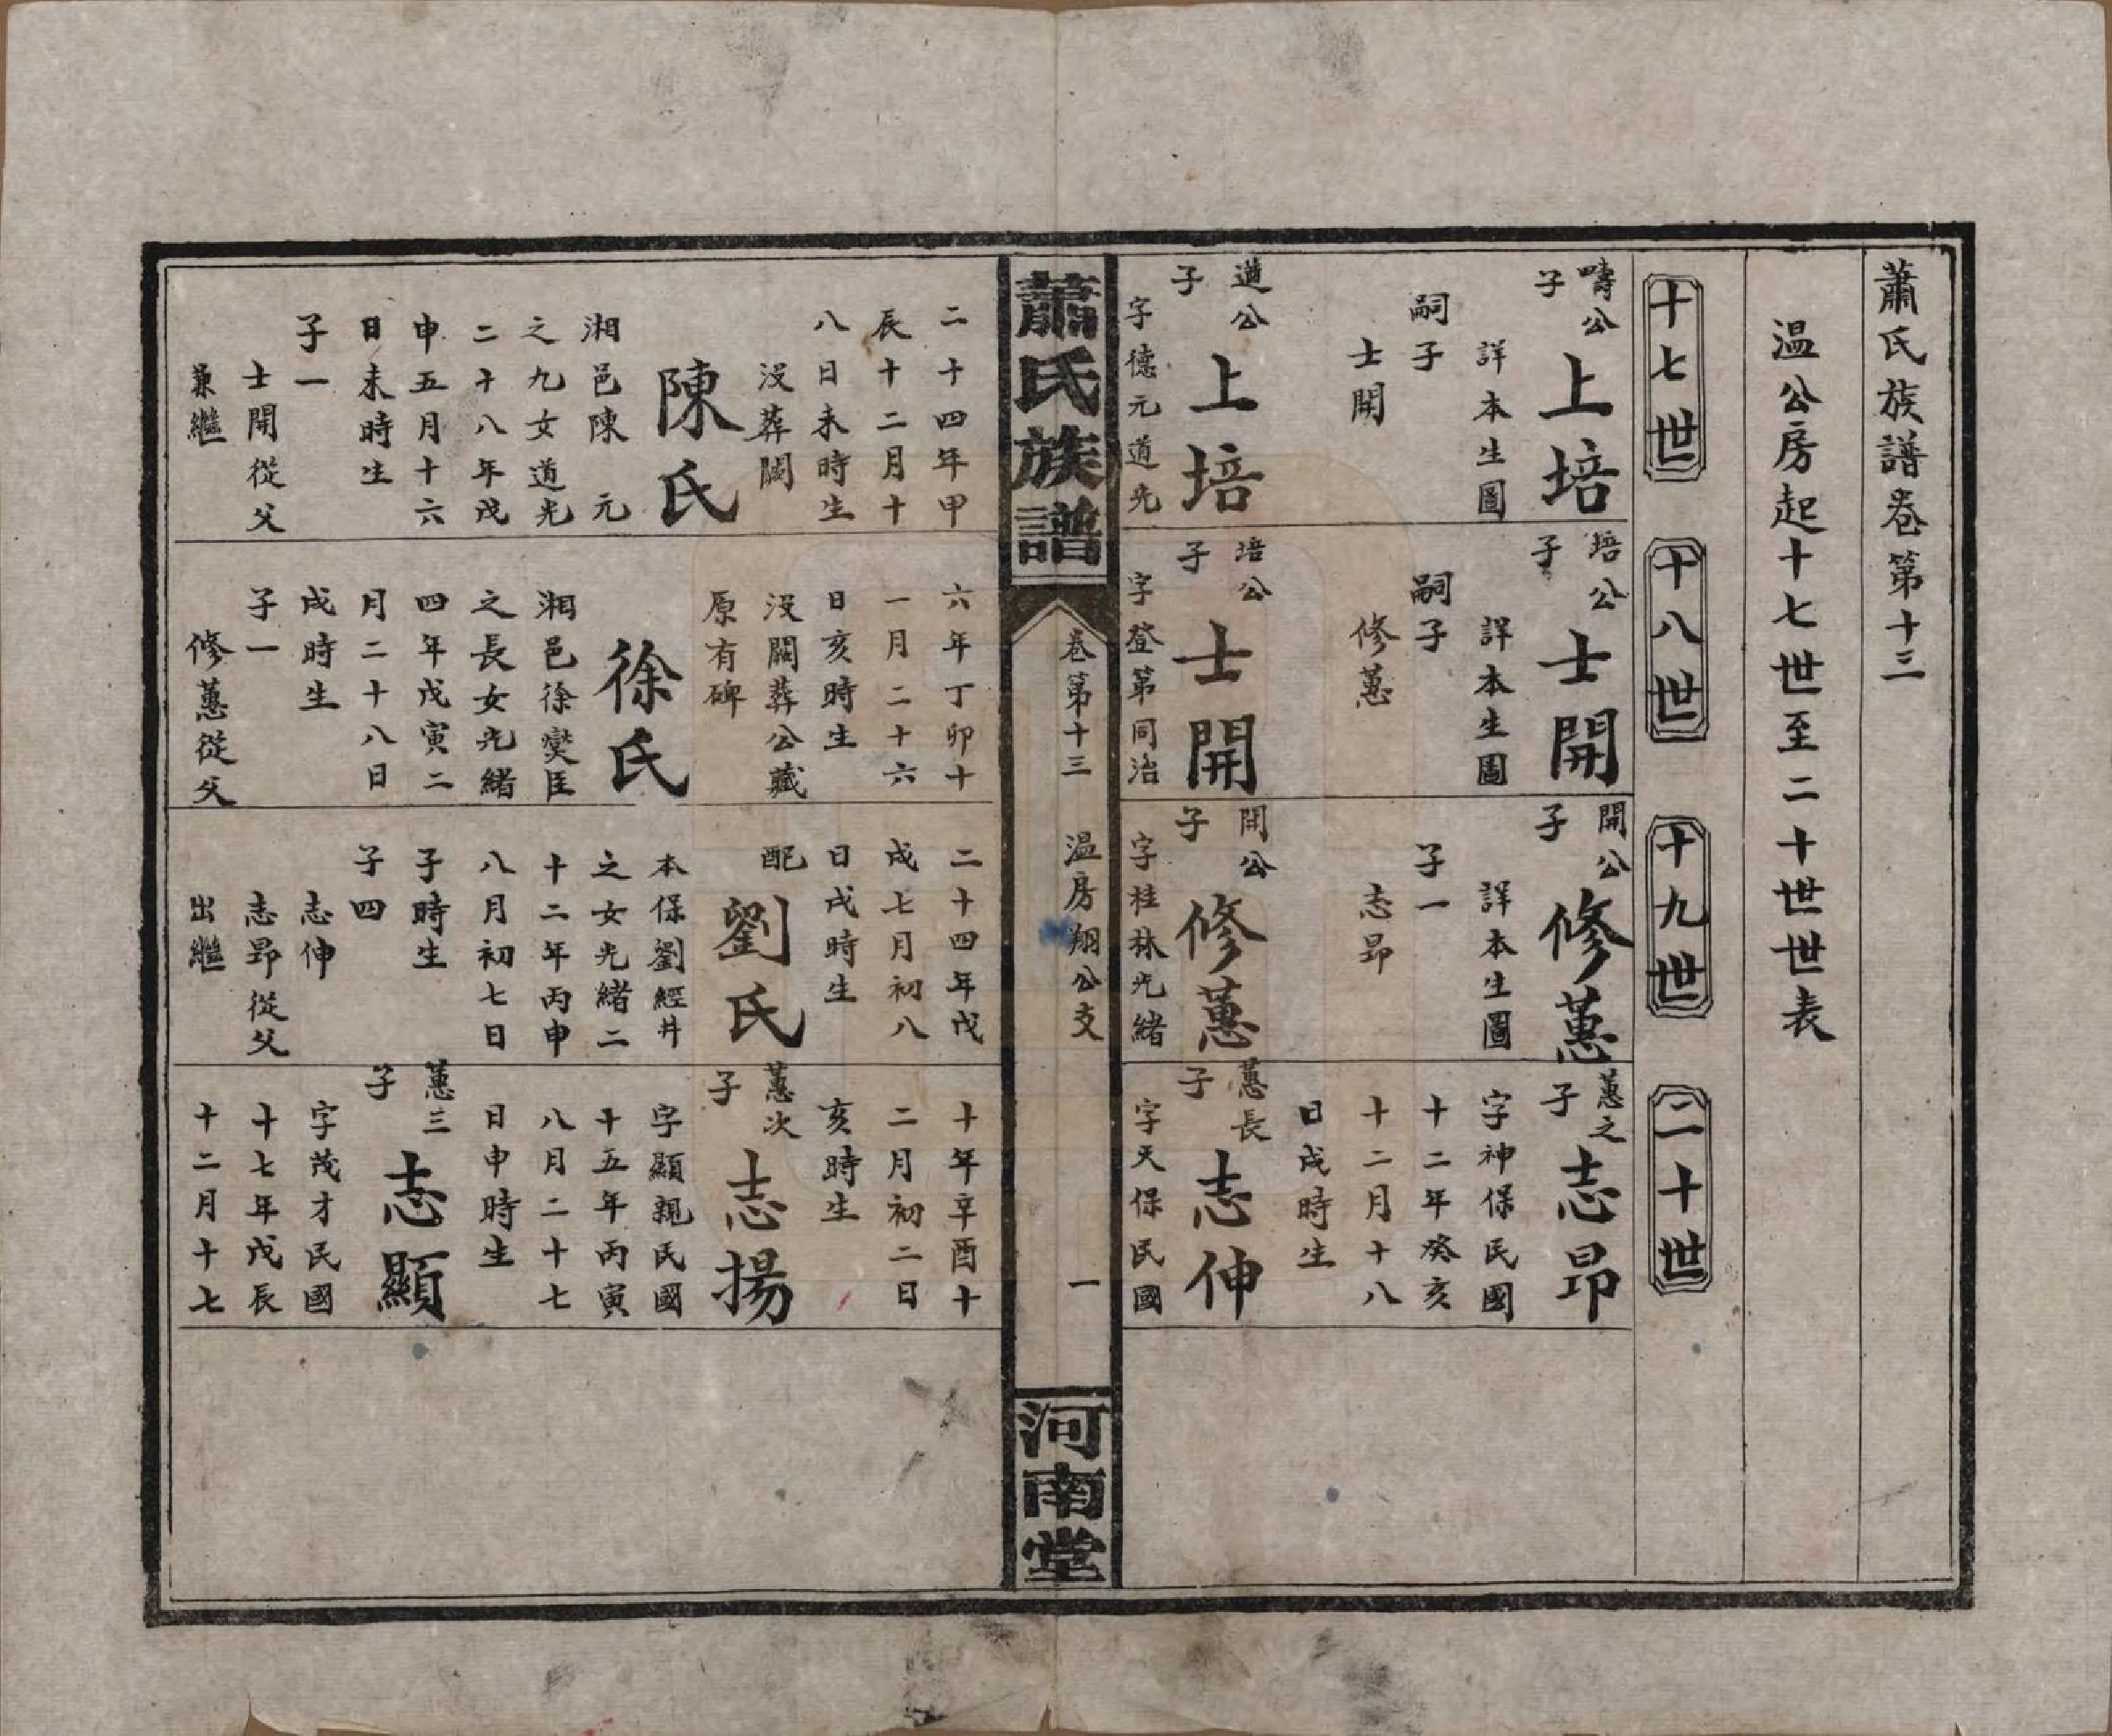 蕭氏族譜卷第十三
溫公房起十七世至二十世世表
十七世
十八世
十九世
二十世
疇公
子
上培
詳本生圖
嗣子
士開
遒公
子
上培
字德元道光
培公
子
士開
詳本生圖
嗣子
修蕙
培公
子
士開
字登第同治
開公
子
修蕙
詳本生圖
子一
志昂
開公
子
修蕙
字桂林光緒
蕙之
子
志昂
字神保民國
十二年癸亥
十二月十八
日戌時生
蕙長
子
志伸
字天保民國
蕭氏族譜
卷第十三
温房翔公支
一
河南堂
二十四年甲
辰十二月十
八日未時生
沒葬闕
陳氏
湘邑陳 元
之九女道光
二十八年戊
申五月十六
日未時生
子一
士開從父
兼繼
六年丁卯十
一月二十六
日亥時生
沒闕葬公藏
原有碑
徐氏
湘邑徐爕臣
之長女光緒
四年戊寅二
月二十八日
戌時生
子一
修蕙從父
二十四年戊
戌七月初八
日戌時生
配
劉氏
本保劉經井
之女光緒二
十二年丙申
八月初七日
子時生
子四
志伸
志昂從父
出繼
十年辛酉十
二月初二日
亥時生
蕙次
子
志揚
字顯親民國
十五年丙寅
八月二十七
日申時生
蕙三
子
志顯
字茂才民國
十七年戊辰
十二月十七